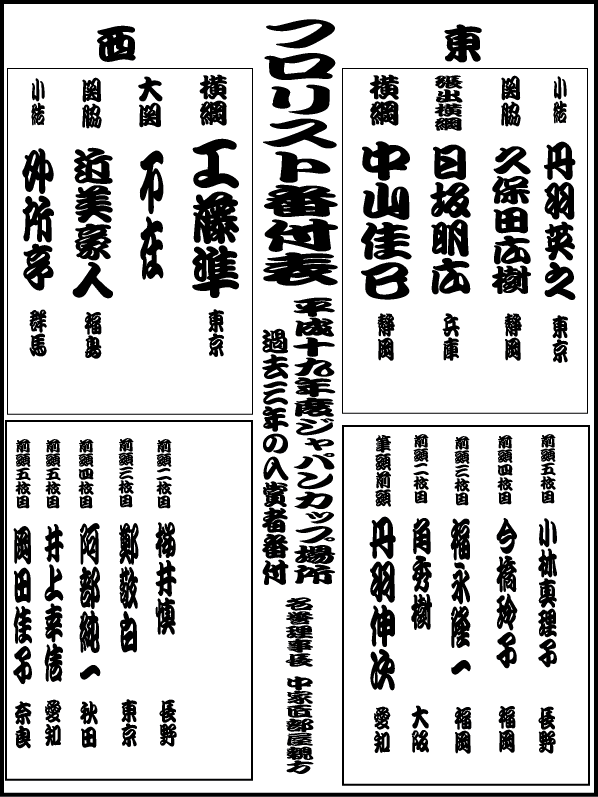 東
小結 丹羽英之 東京
関脇 久保田広樹 静岡
張出横綱 日坂明広 兵庫
横綱 中山佳巳 静岡
前頭五枚目 小林真理子 長野
前頭四枚目 今橋玲子 福岡
前頭三枚目 福永隆一 福岡
前頭二枚目 角秀樹 大阪
筆頭前頭 丹羽伸次 愛知
フロリスト番付表
平成十九年度ジャパンカップ場所
過去三年の入賞者番付
名誉理事長 中家直部屋親方
西
横綱 工藤準 東京
大関 不在
関脇 近美豪人 福島
小結 仲所亨 群馬
前頭二枚目 梯井慎 長野
前頭三枚目 鄭敬自 東京
前頭四枚目 阿部純一 秋田
前頭五枚目 井上幸信 愛知
前頭五枚目 岡田佳子 奈良